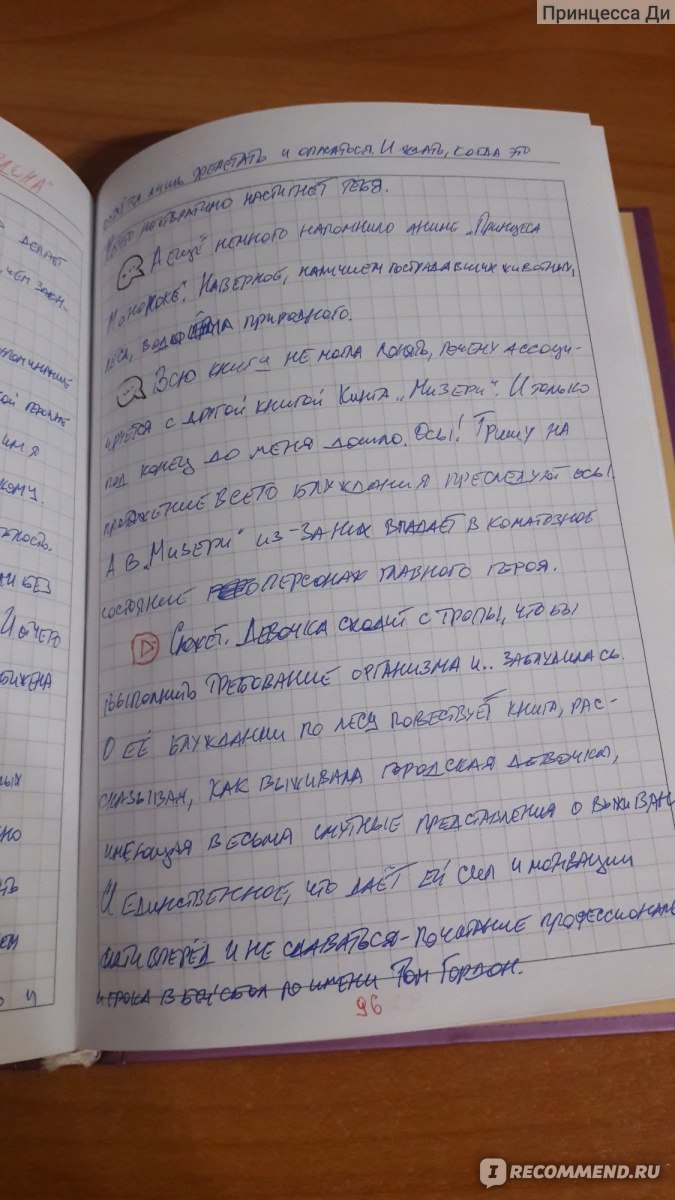 Принцесса Ди
лишь трепетать и опасаться. И ждать, когда это
настигнет тебя.
А ещё немного напомнило аниме „Принцесса
Мононоке". Наверное, наличием пострадавших животных,
леса, природного.
Всю книгу не могла понять, почему ассоци-
ируется с другой книгой Кинга „Мизери". И только
под конец до меня дошло. Осы! Тришу на
протяжение всего блуждания преследуют осы.
А в „Мизери" из-за них впадает в коматозное
состояние персонаж главного героя.
Сюжет. Девочка сходит с тропы, чтобы
выполнить требование организма и.. заблудилась.
О её блуждании по лесу повествует книга, рас-
сказывая, как выживала городская девочка,
имеющая весьма смутные представления о выживан
И единственное, что даёт ей сил и мотивации
идти вперёд и не сдаваться - почитание профессионал
игрока в бейсбол по имени Том Гордон.
96
ДОНА"
делает
чем
ИМЯ
без
но
ать
ем
и
IRECOMMEND.RU